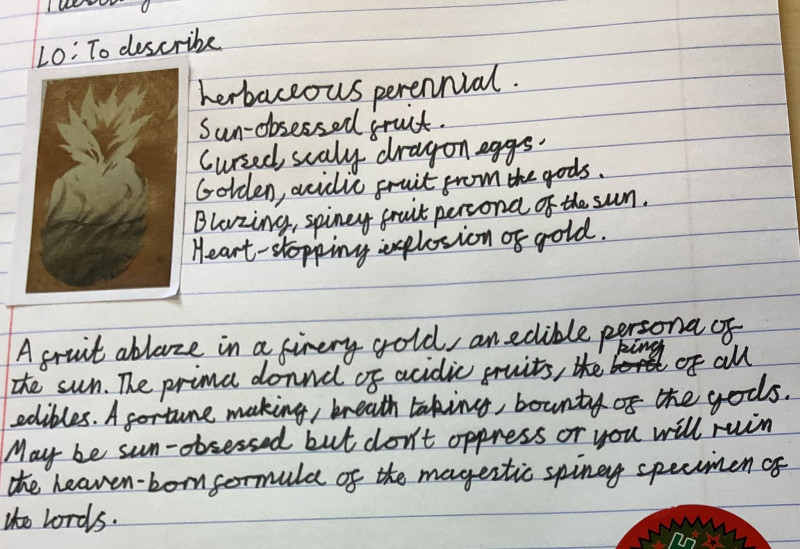 Tuesday
LO: To describe
herbaceous perennial.
Sun-obsessed fruit.
Cursed, scaly dragon eggs.
Golden, acidic fruit from the gods.
Blazing, spiney fruit persona of the sun.
Heart-stopping explosion of gold.
A fruit ablaze in a firery gold, an edible persona of
the sun. The prima donna of acidic fruits, the king of all
edibles. A fortune making, breath taking, bounty of the gods.
May be sun-obsessed but don't oppress or you will ruin
the heaven-born formula of the magestic spiney specimen of
the lords.
H